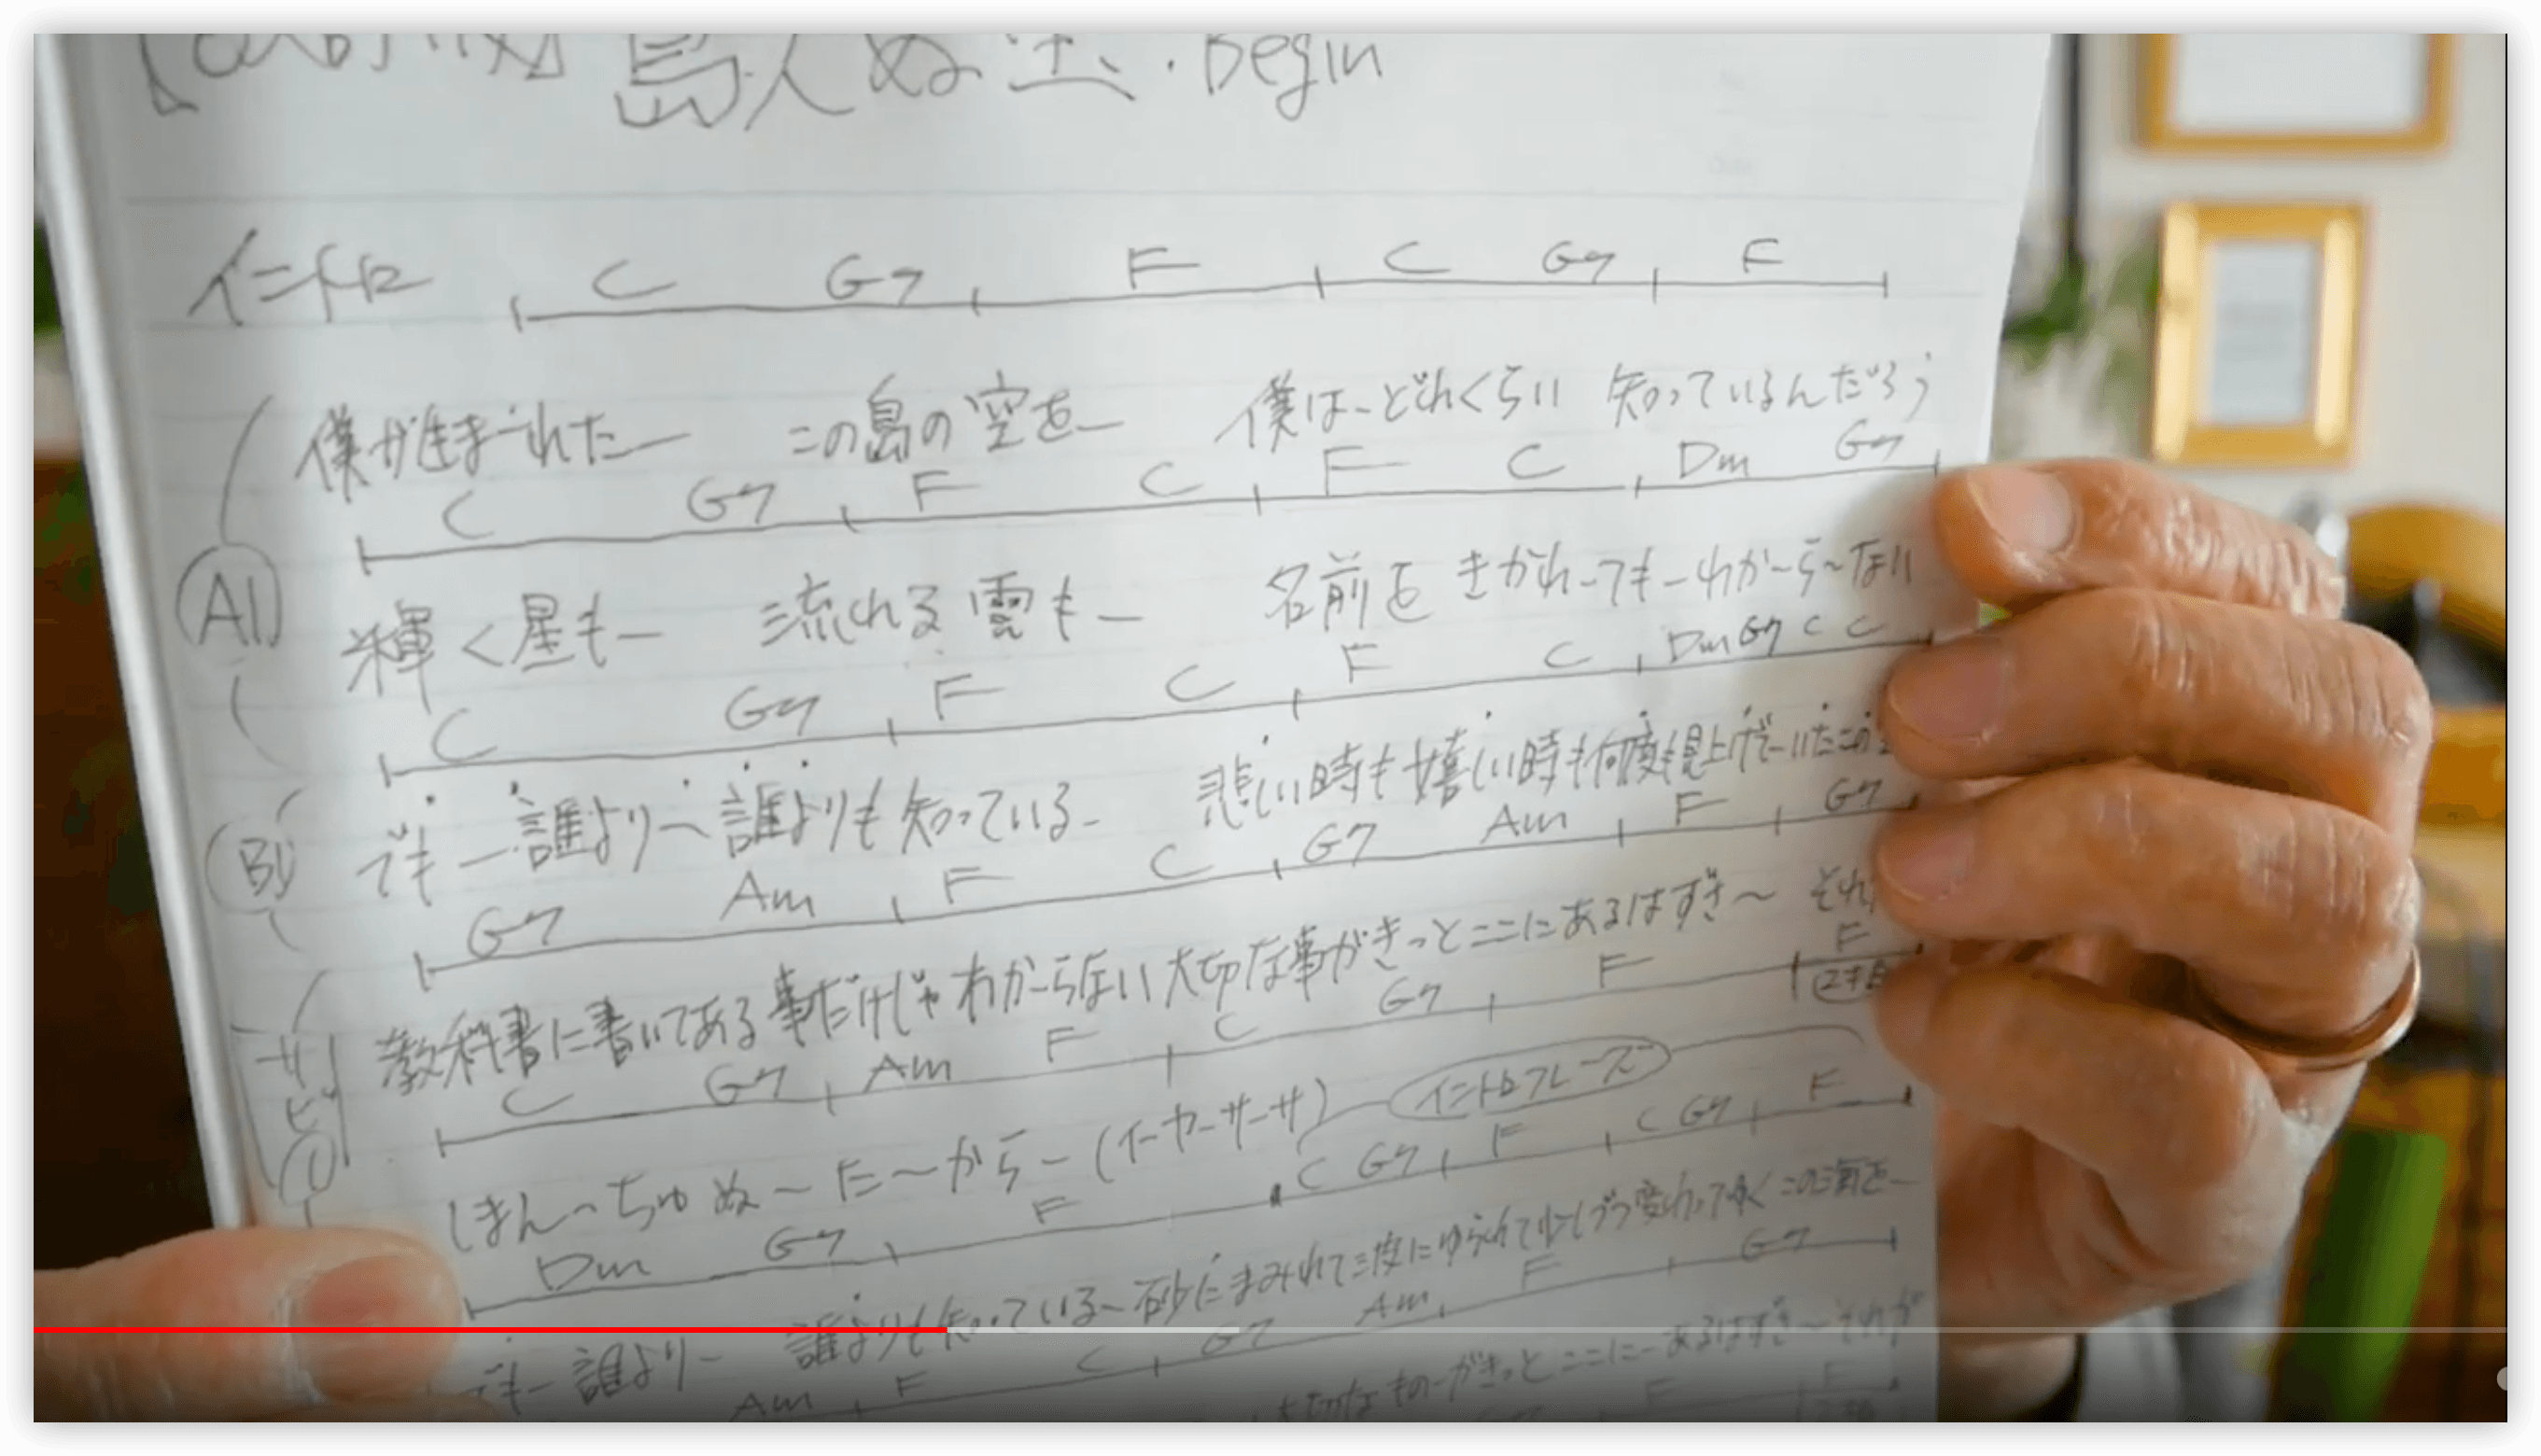 島人ぬ宝・Begin
イントロ C G7 F C G7 F
僕が生まーれたー この島の空をー 僕はーどれくらい 知っているんだろう
C G7 F C F C Dm G7
A1
輝く星もー 流れる雲もー 名前を きかれーてもーわかーらーない
C G7 F C F C Dm G7 C C
B1
でもー誰より〜誰よりも知っているー 悲しい時も嬉しい時も何度も見上げてーいたこの
G7 Am F C G7 Am F G7
サビ1
教科書に書いてある事だけじゃわかーらない大切な事がきっとここにあるはずさ〜 それが
C G7 Am F C G7 F F
しまん〜ちゅぬ〜た〜からー(イーヤーサーサ) イントロフレーズ
Dm G7 F C G7 F C G7 F
でもー誰よりー 誰よりも知っている〜砂にまみれて波にゆられて少しずつ変わってゆくこの海をー
Am F C G7 Am F G7
大切なものーがきっとここにーあるはずさ〜それが
F F